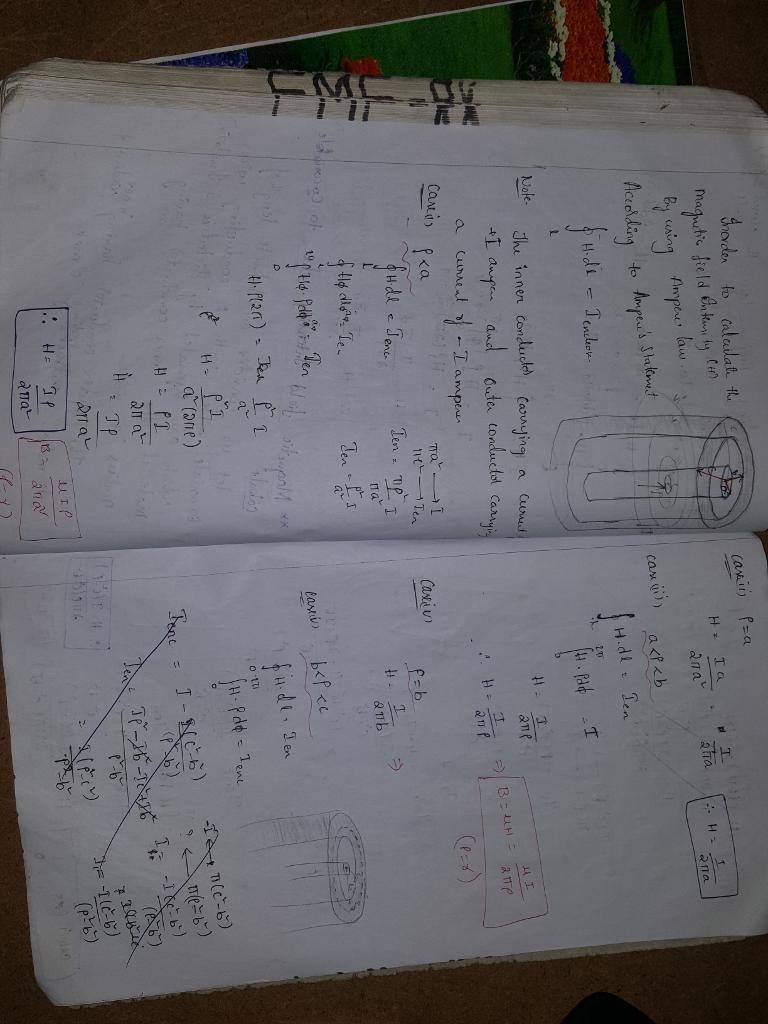 Inorder to calculate the
magnetic field intensity (H)
By using Ampere law
According to Ampere's Statement
∮ H·dl = I
Note- The inner conductor carrying a current
+I ampere and outer conductor carrying
a current of -I ampere
case(i) ρ<a
∮ H dl = Ienc
πa² → I
∮ Hϕ dl = Ien
Ien = πρ²/πa² I
∮ Hϕ ρdϕ = Ien
Ien = ρ²/a² I
H·ρ(2π) = Ien ρ²/a² I
H = ρ²I / a²(2πρ)
H = ρI / 2πa²
H = Iρ / 2πa²
∴ H = Iρ / 2πa²
B = μIρ / 2πa²
(ρ=r)
case(ii) ρ=a
H = Ia / 2πa² = I / 2πa
∴ H = I / 2πa
case(iii) a<ρ<b
∮ H·dl = Ien
∫ H·ρdϕ = I
H = I / 2πρ
∴ H = I / 2πρ ⇒ B = μH = μI / 2πρ
(ρ=r)
Case(iv) ρ=b
H = I / 2πb ⇒
case(v) b<ρ<c
∮ H·dl = Ien
∫ H·ρdϕ = Ienc
-I → π(c²-b²)
? ← π(ρ²-b²)
Ienc = I - I(c²-b²) / (ρ²-b²)
I = -I(c²-b²) / (ρ²-b²)
EMF